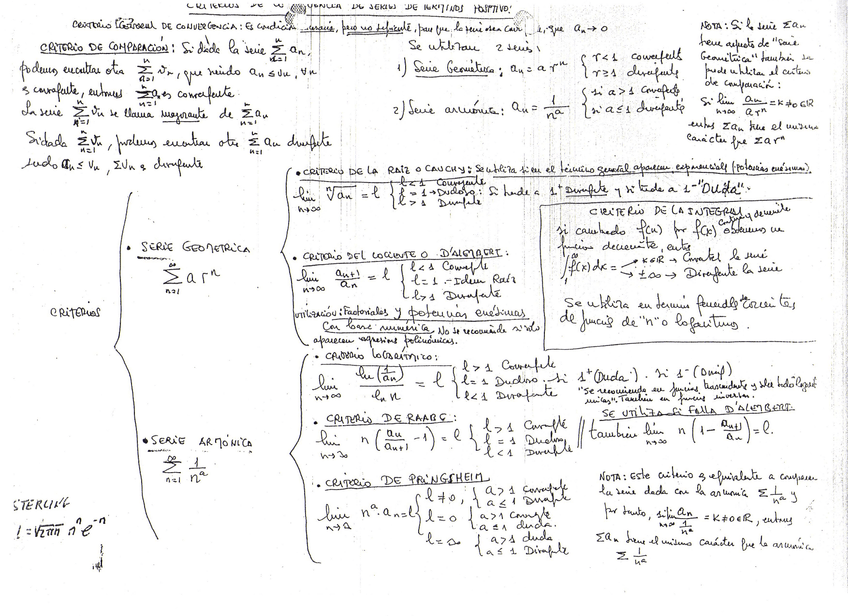 CRITERIOS DE CONVERGENCIA DE SERIES DE TERMINOS POSITIVO
CRITERIO GENERAL DE CONVERGENCIA: Es condición necesaria, pero no suficiente, para que la serie sea conv. , que an → 0
CRITERIO DE COMPARACIÓN: Si dada la serie Σ an,
podemos encontrar otra Σ vn, que siendo an ≤ vn, ∀n
es convergente, entonces Σ an es convergente.
La serie Σ vn se llama mayorante de Σ an
Si dada Σ vn, podemos encontrar otra Σ an divergente
siendo an ≤ vn, Σ vn es divergente
Se utilizan 2 series:
1) Serie Geométrica: an = a rⁿ { r<1 convergente
r≥1 divergente
2) Serie armónica: an = 1/nᵃ { si a>1 convergente
si a≤1 divergente
NOTA: Si la serie Σ an
tiene aspecto de "serie
Geométrica" también se
puede utilizar el criterio
de comparación:
Si lim an/(a rⁿ) = K ≠ 0 ∈ R
entonces Σ an tiene el mismo
carácter que Σ a rⁿ
CRITERIOS
• SERIE GEOMETRICA
Σ a rⁿ
n=1
• CRITERIO DE LA RAÍZ O CAUCHY: Se utiliza si en el término general aparecen exponenciales (potencias enésimas).
lim ⁿ√an = l { l<1 Convergente
n→∞ l=1 → Dudoso: Si tiende a 1⁺ Divergente y si tiende a 1⁻ "Duda".
l>1 Divergente
• CRITERIO DEL COCIENTE O D'ALEMBERT:
lim an+1/an = l { l<1 Convergente
n→∞ l=1 - Idem Raíz
l>1 Divergente
Utilización: Factoriales y potencias enésimas
Con base numérica. No se recomienda si solo
aparecen expresiones polinómicas.
CRITERIO DE LA INTEGRAL
si cambiando f(n) por f(x) obtenemos una
continua y decreciente
función decreciente, entonces
∫ f(x) dx = K∈R → Converge la serie
±∞ → Divergente la serie
Se utiliza en términos generales concretos
de función de "n" o logaritmo.
• SERIE ARMÓNICA
Σ 1/nᵃ
n=1
• CRITERIO LOGARÍTMICO:
lim ln(1/an)/ln n = l { l>1 Convergente
n→∞ l=1 Dudoso. Si 1⁺ (Duda). Si 1⁻ (Diverg)
l<1 Divergente
"Se recomienda en funciones trascendentes y sobre todo logarít
micas". También en funciones inversas.
• CRITERIO DE RAABE:
lim n (an/an+1 - 1) = l { l>1 Convergente
n→∞ l=1 Dudoso
l<1 Divergente
SE UTILIZA SI FALLA D'ALEMBERT.
// también lim n (1 - an+1/an) = l.
n→∞
• CRITERIO DE PRINGSHEIM
lim nᵃ·an = l { l≠0, { a>1 Convergente
n→∞ a≤1 Divergente
l=0 { a>1 Converge
a≤1 duda.
l=∞ { a>1 duda
a≤1 Divergente
NOTA: Este criterio es equivalente a comparar
la serie dada con la armónica Σ 1/nᵃ y
por tanto, si lim an/(1/nᵃ) = K ≠ 0 ∈ R, entonces
Σ an tiene el mismo carácter que la armónica
Σ 1/nᵃ
STERLING
! = √2πn nⁿ e⁻ⁿ